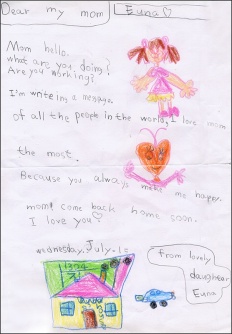 Dear my mom
Euna♡
Mom hello.
what are you doing?
Are you working?
I'm writeing a message.
of all the people in the world, I love mom
the most.
Because you always make me happy.
mom! come back home soon.
I love you♡
wednesday. July.
from lovely
daughter
Euna